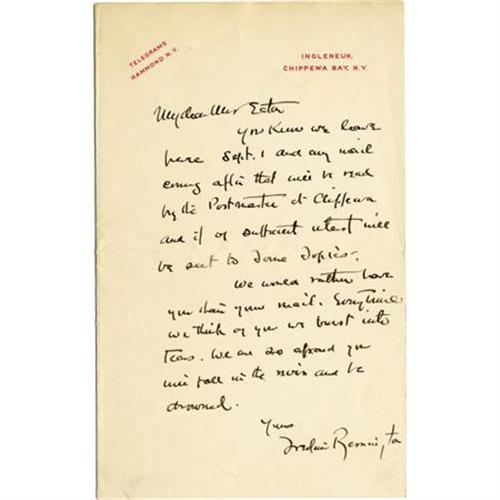 TELEGRAMS
HAMMOND N.Y.
INGLENEUK,
CHIPPEWA BAY, N.Y.
My dear Mrs Eaton
You know we leave
here Sept. 1 and any mail
coming after that will be read
by the Postmaster at Chippewa
and if of sufficient interest will
be sent to Town Topics.
We would rather have
you than your mail. Everytime
we think of you we burst into
tears. We are so afraid you
will fall in the river and be
drowned.
Yours
Frederic Remington